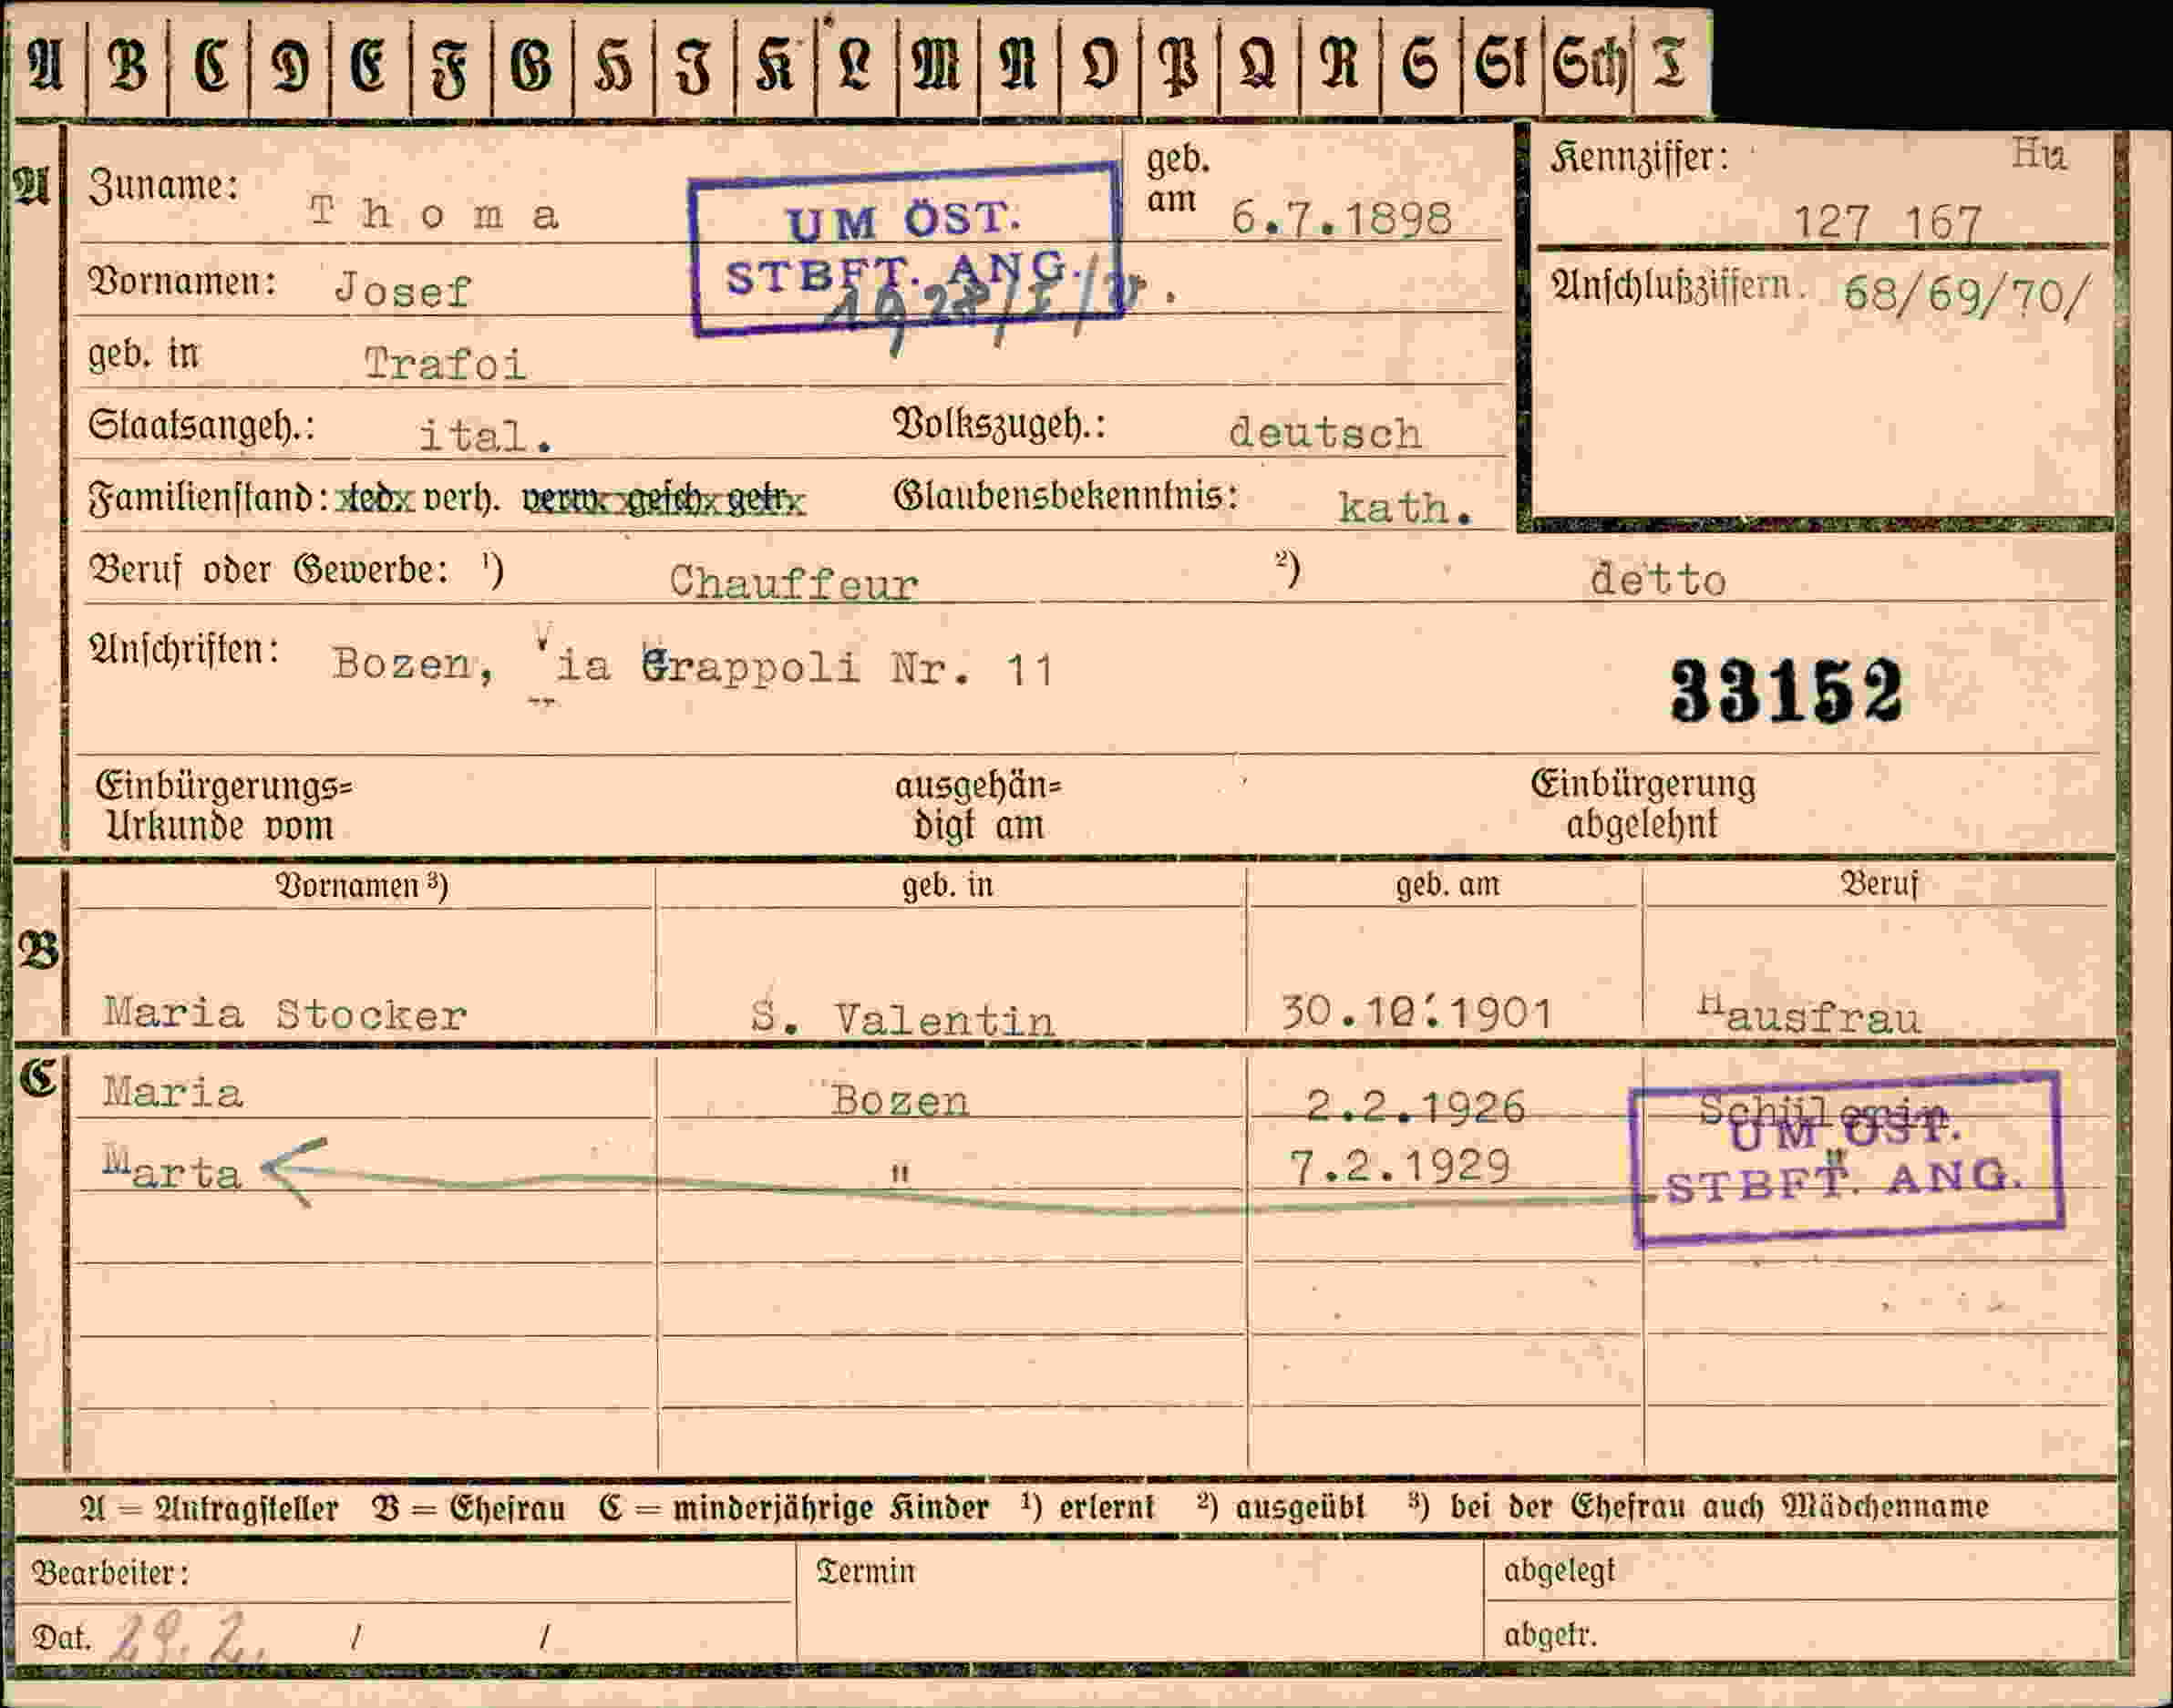 A B C D E F G H I K L M N O P Q R S St Sch T
A Zuname: Thoma
geb. am 6.7.1898
UM ÖST.
STBFT. ANG.
Kennziffer: Hu
127 167
Vornamen: Josef
Anschlußziffern. 68/69/70/
geb. in Trafoi
Staatsangeh.: ital. Volkszugeh.: deutsch
Familienstand: led. verh. verw. gesch. getr. Glaubensbekenntnis: kath.
Beruf oder Gewerbe: ¹) Chauffeur ²) detto
Anschriften: Bozen, Via Grappoli Nr. 11
33152
Einbürgerungs=
Urkunde vom
ausgehän=
digt am
Einbürgerung
abgelehnt
Vornamen ³) geb. in geb. am Beruf
B
Maria Stocker S. Valentin 30.10.1901 Hausfrau
C Maria Bozen 2.2.1926 Schülerin
Marta " 7.2.1929 "
UM ÖST.
STBFT. ANG.
A = Antragsteller B = Ehefrau C = minderjährige Kinder ¹) erlernt ²) ausgeübt ³) bei der Ehefrau auch Mädchenname
Bearbeiter: Termin abgelegt
Dat. 29. 2. / / abgetr.